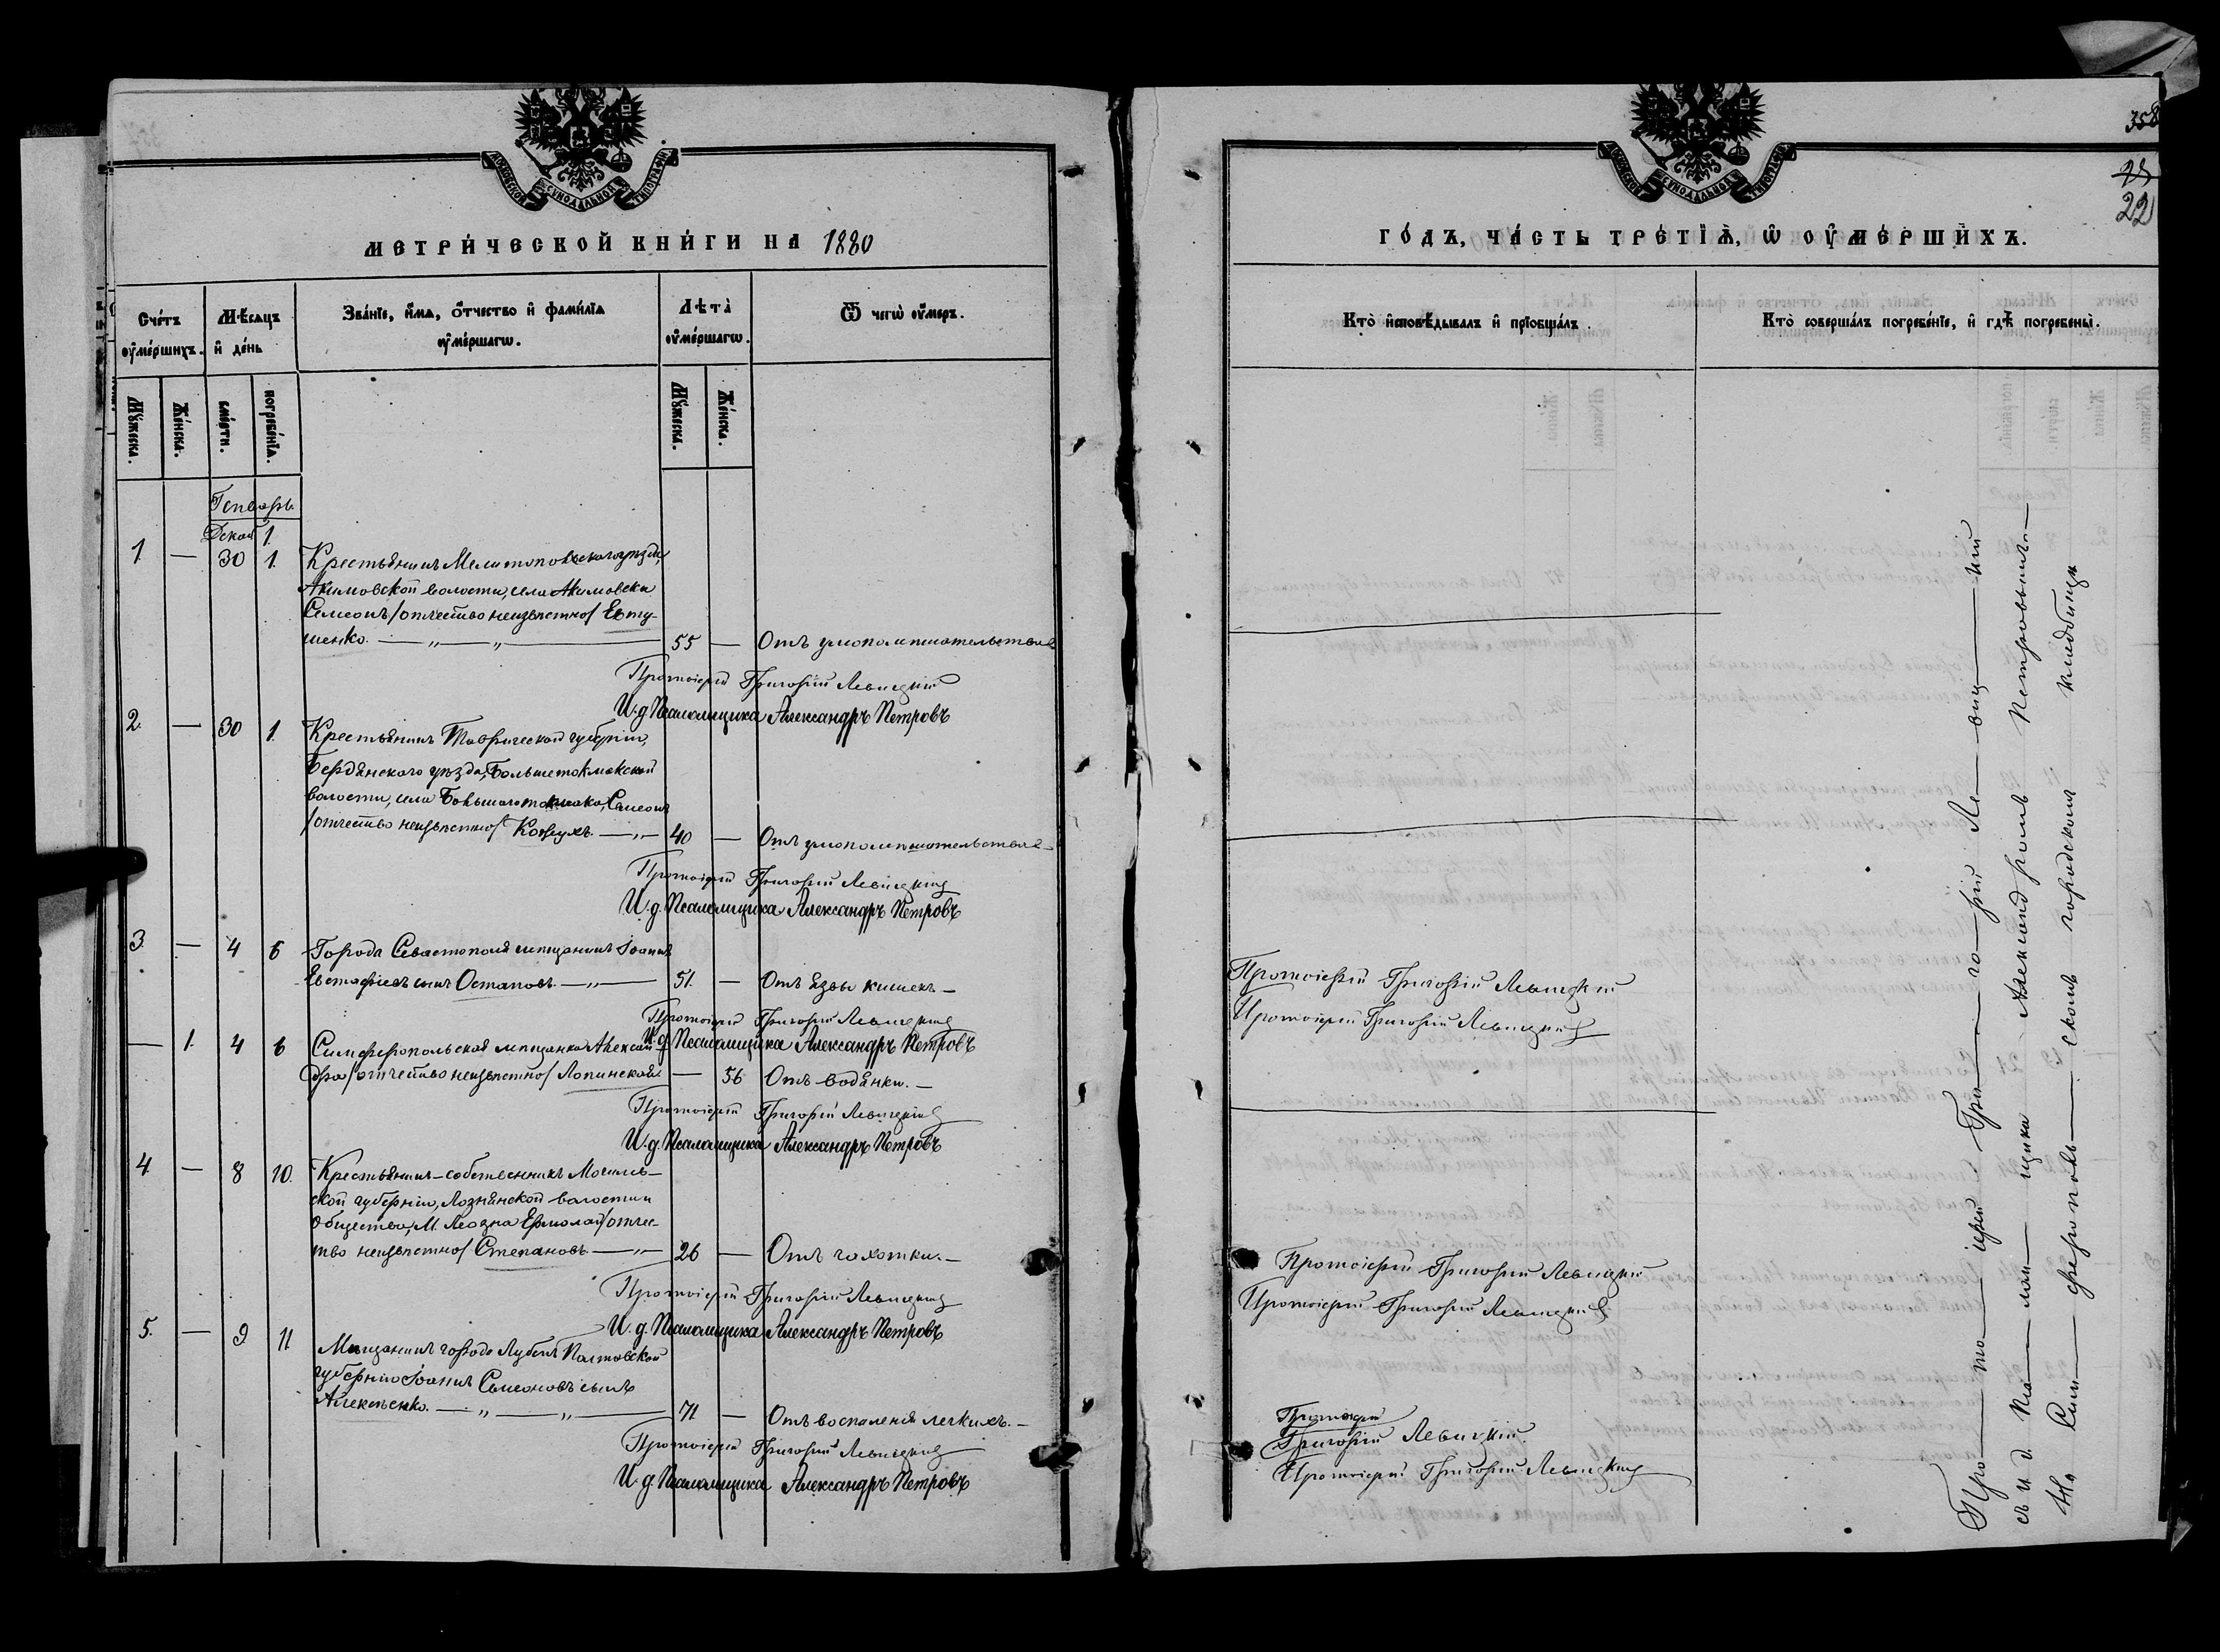 МОСКОВСКОЙ СѴНОДАЛЬНОЙ ТИПОГРАФІИ
МЕТРИ́ЧЕСКОЙ КНИ́ГИ НА 1880
Сче́тъ ᲂу҆ме́ршихъ.
Мѣ́сяцъ и҆ де́нь
Зва́нїе, и҆́мѧ, ѻ҆́тчество и҆ фами́лїѧ ᲂу҆ме́ршагѡ.
Лѣта̀ ᲂу҆ме́ршагѡ.
Ѿ чегѡ̀ ᲂу҆́меръ.
Мꙋ́жеска.
Же́нска.
сме́рти.
погребе́нїѧ.
Мꙋ́жеска.
Же́нска.
Генварь
Декаб 1.
1. — 30 1. Крестьянинъ Мелитопольскаго уѣзда,
Акимовской волости, села Акимовки
Симеонъ /отчество неизвѣстно/ Евту-
шенко. — „ — „ — 55 — Отъ умопомѣшательства
Протоіерей Григорій Левицкій
И. д. Псаломщика Александръ Петровъ
2. — 30 1. Крестьянинъ Таврической губерніи,
Бердянскаго уѣзда, Большетокмакской
волости, села Большаго токмака, Симеонъ
/отчество неизвѣстно/ Кожухъ. — „ — 40 — Отъ умопомѣшательства —
Протоіерей Григорій Левицкій
И. д. Псаломщика Александръ Петровъ
3. — 4 6 Города Севастополя мѣщанинъ Іоаннъ
Евстафіевъ сынъ Остаповъ. — „ — 51. — Отъ язвы кишекъ —
Протоіерей Григорій Левицкій
И. д. Псаломщика Александръ Петровъ
— 1. 4 6 Симферопольская мѣщанка Алексан-
дра /отчество неизвѣстно/ Лопинская. — 56 Отъ водянки. —
Протоіерей Григорій Левицкій
И. д. Псаломщика Александръ Петровъ
4. — 8 10. Крестьянинъ-собственникъ Могилев-
ской губерніи, Лознянской волости и
общества, М. Леозна Ермолай /отчес-
тво неизвѣстно/ Степановъ. — „ — 26 — Отъ чахотки. —
Протоіерей Григорій Левицкій
И. д. Псаломщика Александръ Петровъ
5. — 9 11 Мѣщанинъ города Лубенъ Полтавской
губерніи Іоаннъ Симеоновъ сынъ
Алексѣенко. — „ — „ — 71 — Отъ воспаленія легкихъ. —
Протоіерей Григорій Левицкій
И. д. Псаломщика Александръ Петровъ
358
22
МОСКОВСКОЙ СѴНОДАЛЬНОЙ ТИПОГРАФІИ
ГО́ДЪ, ЧА́СТЬ ТРЕ́ТЇѦ, Ѡ҆ ОУ҆МЕ́РШИХЪ.
Кто̀ и҆сповѣ́дывалъ и҆ прїѡбща́лъ.
Кто̀ соверша́лъ погребе́нїе, и҆ гдѣ̀ погребены̀.
Протоіерей Григорій Левицкій
Протоіерей Григорій Левицкій
Протоіерей Григорій Левицкій
Протоіерей Григорій Левицкій
Протоіерей
Григорій Левицкій.
Протоіерей Григорій Левицкій
Про — то — іерей Гри — го — рій Ле — виц — кій
съ и. д. Пса — лом — щика Александромъ Петровымъ. —
На Сим — ферополь — скомъ городскомъ кладбищѣ